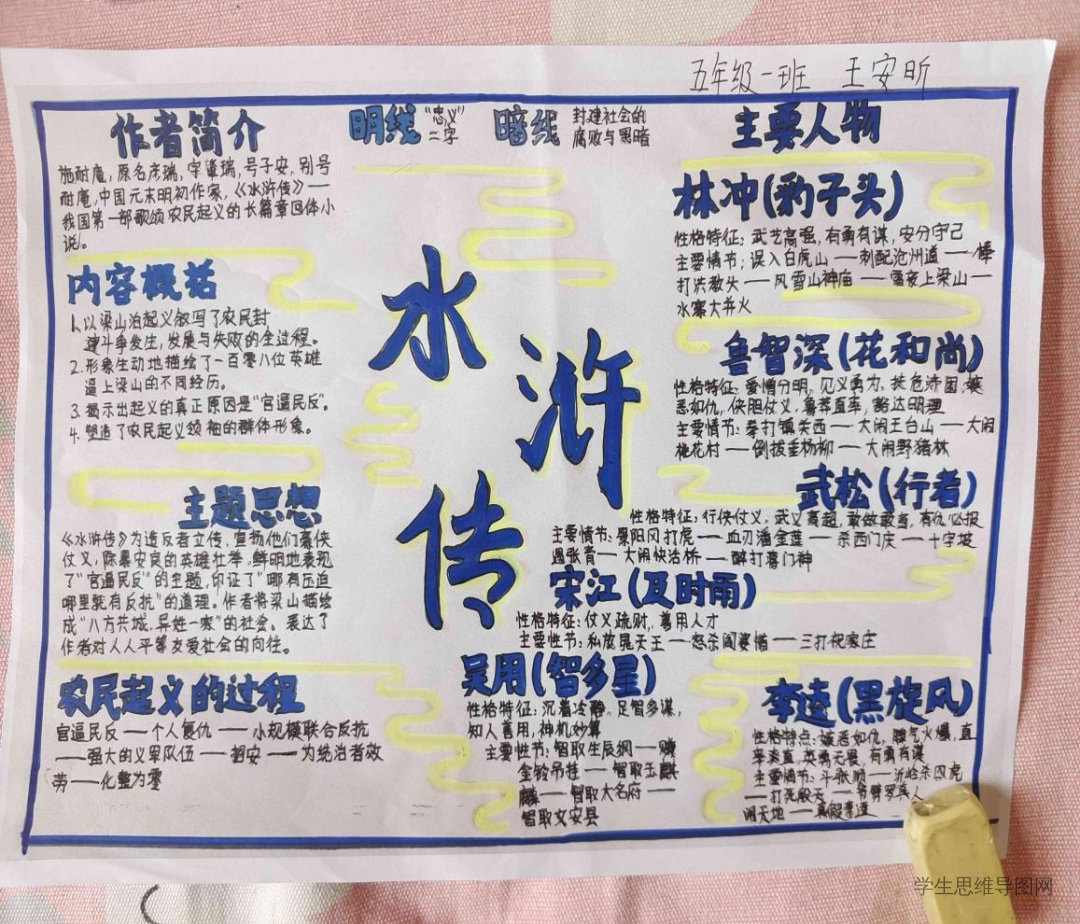 五年级一班 王安昕
作者简介
施耐庵,原名彦瑞,字肇瑞,号子安,别号
耐庵,中国元末明初作家,《水浒传》——
我国第一部歌颂农民起义的长篇章回体小
说。
明线 "忠义"
二字
暗线 封建社会的
腐败与黑暗
内容概括
1.以梁山泊起义叙写了农民封
建斗争发生,发展与失败的全过程。
2.形象生动地描绘了一百零八位英雄
逼上梁山的不同经历。
3.揭示出起义的真正原因是"官逼民反"。
4.塑造了农民起义领袖的群体形象。
主题思想
《水浒传》为造反者立传,宣扬他们豪侠
仗义,除暴安良的英雄壮举,鲜明地表现
了"官逼民反"的主题,印证了"哪有压迫
哪里就有反抗"的道理。作者将梁山描绘
成"八方共域,异姓一家"的社会。表达了
作者对人人平等友爱社会的向往。
农民起义的过程
官逼民反——个人复仇——小规模联合反抗
——强大的义军队伍——招安——为统治者效
劳——化整为零
水浒传
主要人物
林冲(豹子头)
性格特征:武艺高强,有勇有谋,安分守己
主要情节:误入白虎山——刺配沧州道——棒
打洪教头——风雪山神庙——雪夜上梁山——
水寨大并火
鲁智深(花和尚)
性格特征:爱憎分明,见义勇为,扶危济困,嫉
恶如仇,侠胆仗义,鲁莽直率,豁达明理
主要情节:拳打镇关西——大闹王台山——大闹
桃花村——倒拔垂杨柳——大闹野猪林
武松(行者)
性格特征:行侠仗义,武义高超,敢做敢当,有仇必报
主要情节:景阳冈打虎——血刃潘金莲——杀西门庆——十字坡
遇张青——大闹快活桥——醉打蒋门神
宋江(及时雨)
性格特征:仗义疏财,善用人才
主要性节:私放晁天王——怒杀阎婆惜——三打祝家庄
吴用(智多星)
性格特征:沉着冷静,足智多谋,
知人善用,神机妙算
主要性节:智取生辰纲——赚
金铃吊挂——智取玉麒
麟——智取大名府——
智取文安县
李逵(黑旋风)
性格特点:嫉恶如仇,脾气火爆,直
率淡直,英勇无畏,有勇有谋
主要情节:斗张顺——沂岭杀四虎
——打死殷天——斧劈罗真人
闹天地——真假李逵
学生思维导图网